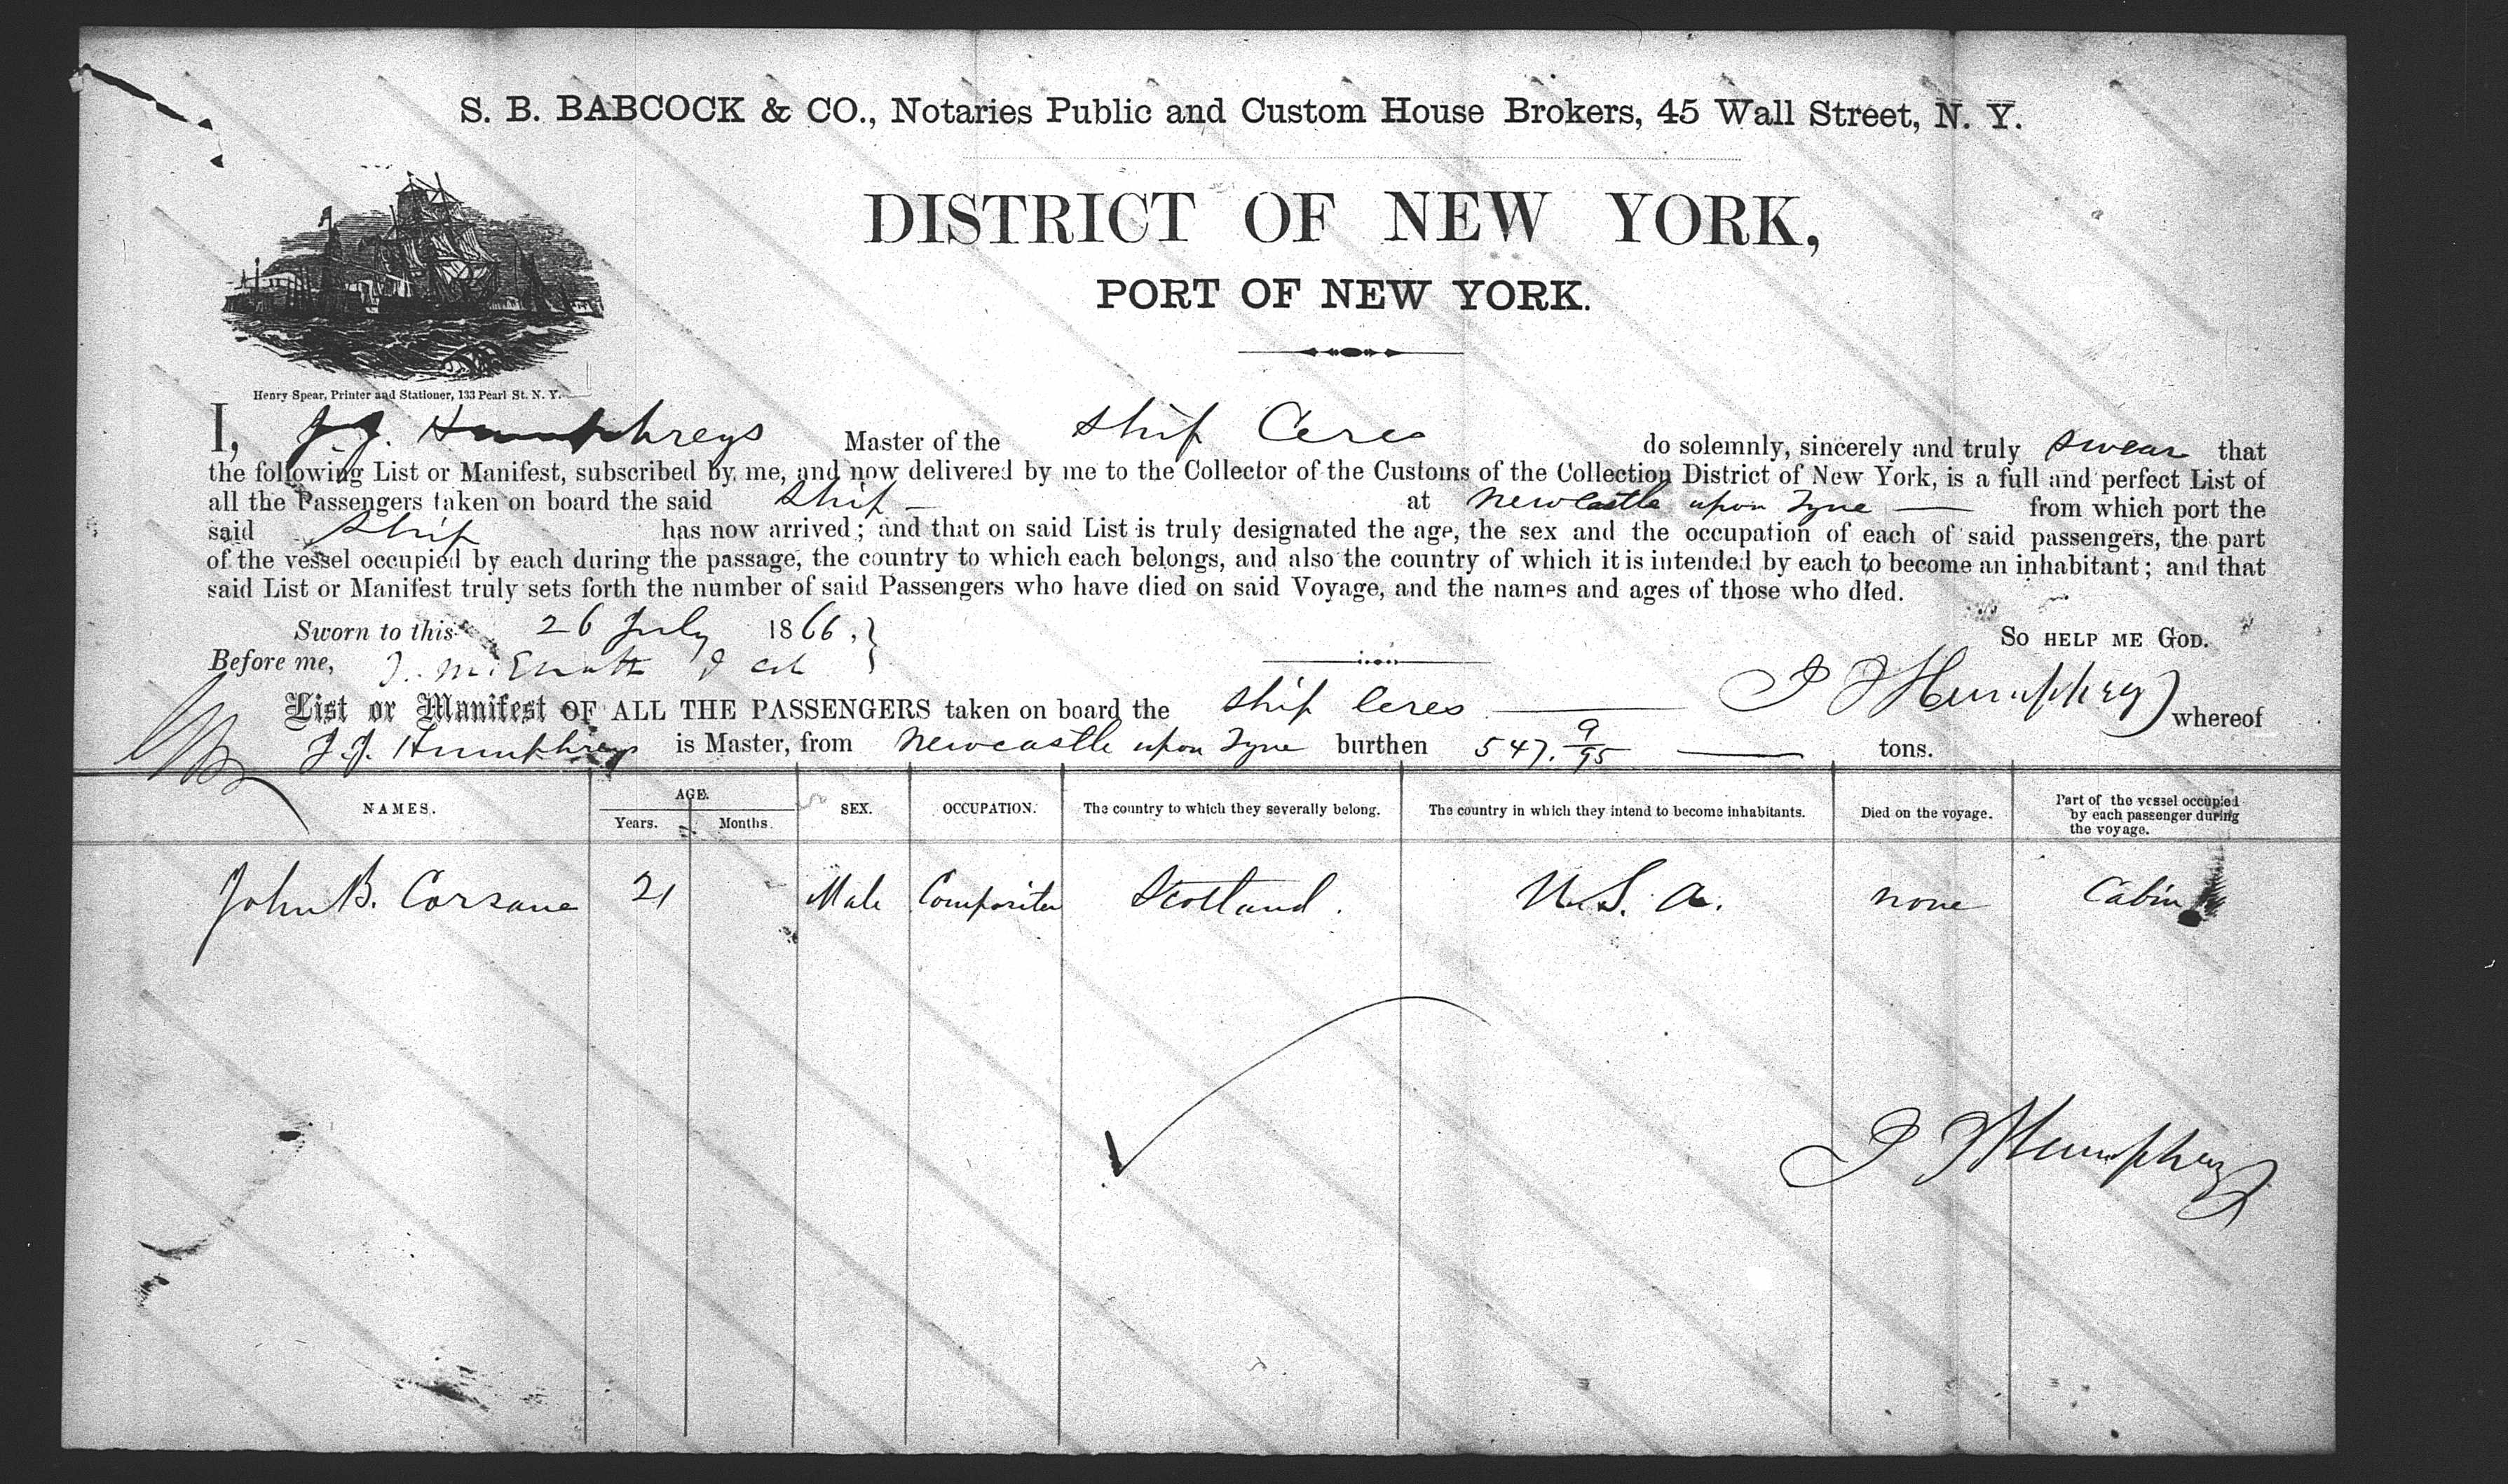 S. B. BABCOCK & CO., Notaries Public and Custom House Brokers, 45 Wall Street, N. Y.
DISTRICT OF NEW YORK,
PORT OF NEW YORK.
Henry Spear, Printer and Stationer, 133 Pearl St. N. Y.
I, J. J. Humphreys Master of the Ship Ceres do solemnly, sincerely and truly swear that
the following List or Manifest, subscribed by me, and now delivered by me to the Collector of the Customs of the Collection District of New York, is a full and perfect List of
all the Passengers taken on board the said Ship — at Newcastle upon Tyne — from which port the
said Ship has now arrived; and that on said List is truly designated the age, the sex and the occupation of each of said passengers, the part
of the vessel occupied by each during the passage, the country to which each belongs, and also the country of which it is intended by each to become an inhabitant; and that
said List or Manifest truly sets forth the number of said Passengers who have died on said Voyage, and the names and ages of those who died.
Sworn to this 26 July 1866, } SO HELP ME GOD.
Before me,
J J Humphreys
List or Manifest OF ALL THE PASSENGERS taken on board the Ship Ceres — whereof
J. J. Humphreys is Master, from Newcastle upon Tyne burthen 547. 9/95 — tons.
NAMES. AGE. Years. Months. SEX. OCCUPATION. The country to which they severally belong. The country in which they intend to become inhabitants. Died on the voyage. Part of the vessel occupied by each passenger during the voyage.
John B. Corsane 21 Male Compositer Scotland. U. S. A. none Cabin
J J Humphreys